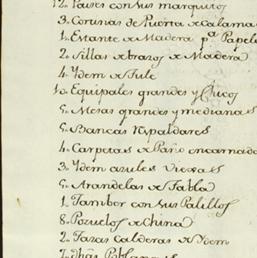 12. Paises con sus marquitos
3. Cortinas de Puerta de Calama
1. Estante de Madera pa Papele
2. Sillas de brazos de Madera
4. Ydem de Tule
10. Equipales grandes y Chicos
5. Mesas grandes y medianas
5. Bancas Respaldares
4. Carpetas de Paño encarnado
3. Ydem azules Viexas
5. Arandelas de Tabla
1. Tambor con sus Palillos
8. Pozuelos de China
2. Tazas calderas de Ydem